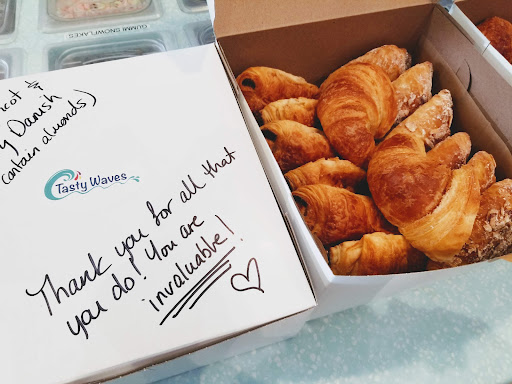 GUMMI SNOWFLAKES
& 
Danish
contain almonds)
Tasty Waves
Thank you for all that
you do! You are
invaluable!